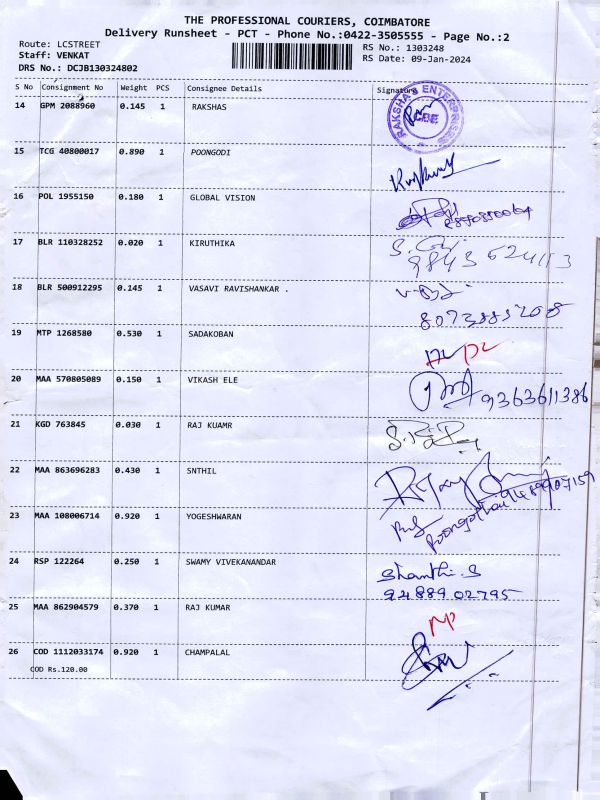 THE PROFESSIONAL COURIERS, COIMBATORE
Delivery Runsheet - PCT - Phone No.:0422-3505555 - Page No.:2
Route: LCSTREET
Staff: VENKAT
DRS No.: DCJB130324802
RS No.: 1303248
RS Date: 09-Jan-2024
S No Consignment No Weight PCS Consignee Details Signature
14 GPM 2088960 0.145 1 RAKSHAS
RAKSHA'S ENTERPRISES
CBE
15 TCG 40800017 0.890 1 POONGODI
16 POL 1955150 0.180 1 GLOBAL VISION
17 BLR 110328252 0.020 1 KIRUTHIKA
9843624113
18 BLR 500912295 0.145 1 VASAVI RAVISHANKAR .
19 MTP 1268580 0.530 1 SADAKOBAN
20 MAA 570805089 0.150 1 VIKASH ELE
9363611386
21 KGD 763845 0.030 1 RAJ KUAMR
22 MAA 863696283 0.430 1 SNTHIL
23 MAA 108006714 0.920 1 YOGESHWARAN
24 RSP 122264 0.250 1 SWAMY VIVEKANANDAR
Shanthi.S
9488902795
25 MAA 862904579 0.370 1 RAJ KUMAR
26 COD 1112033174 0.920 1 CHAMPALAL
COD Rs.120.00